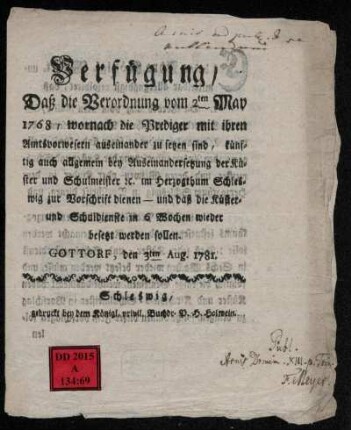 Verfügung,
Daß die Verordnung vom 2ten May
1768, wornach die Prediger mit ihren
Amtsvorwesern auseinander zu setzen sind, künf-
tig auch allgemein bey Auseinandersetzung der Kü-
ster und Schulmeister ꝛc. im Herzogthum Schles-
wig zur Vorschrift dienen — und daß die Küster-
und Schuldienste in 6 Wochen wieder
besetzt werden sollen.
GOTTORF, den 3ten Aug. 1781.
Schleswig,
gedruckt bey dem Königl. privil. Buchdr. D. H. Holwein.
DD 2015
A
134:69
Publ.